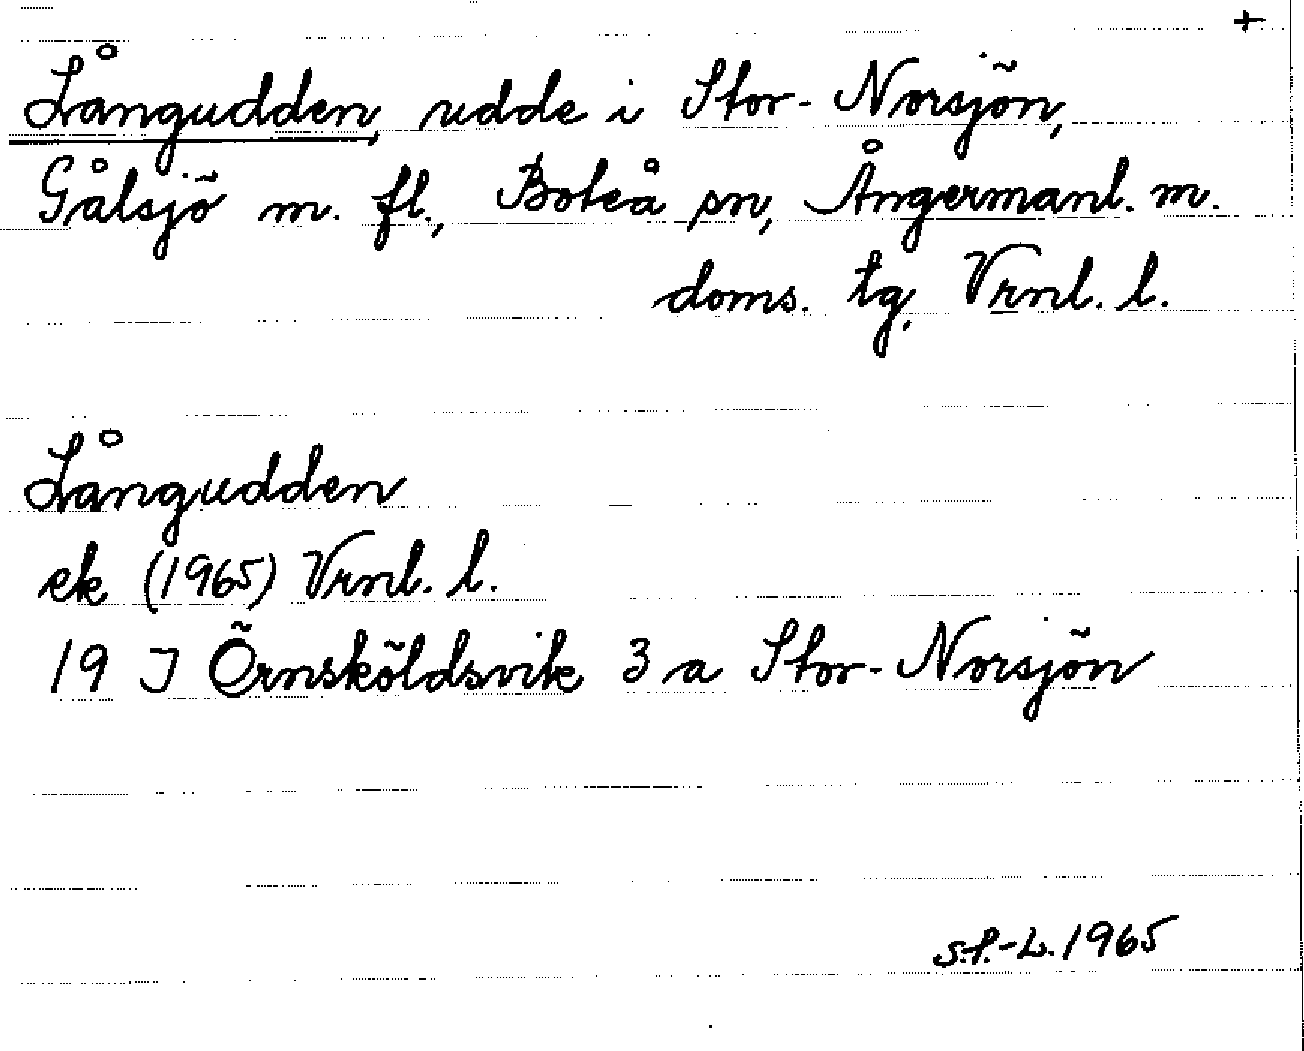 +
Långudden, udde i Stor-Norsjön,
Gålsjö m. fl., Boteå sn, Ångermanl. m.
doms. tg, Vrnl. l.
Långudden
ek (1965) Vrnl. l.
19 J Örnsköldsvik 3 a Stor-Norsjön
S.f.-L. 1965